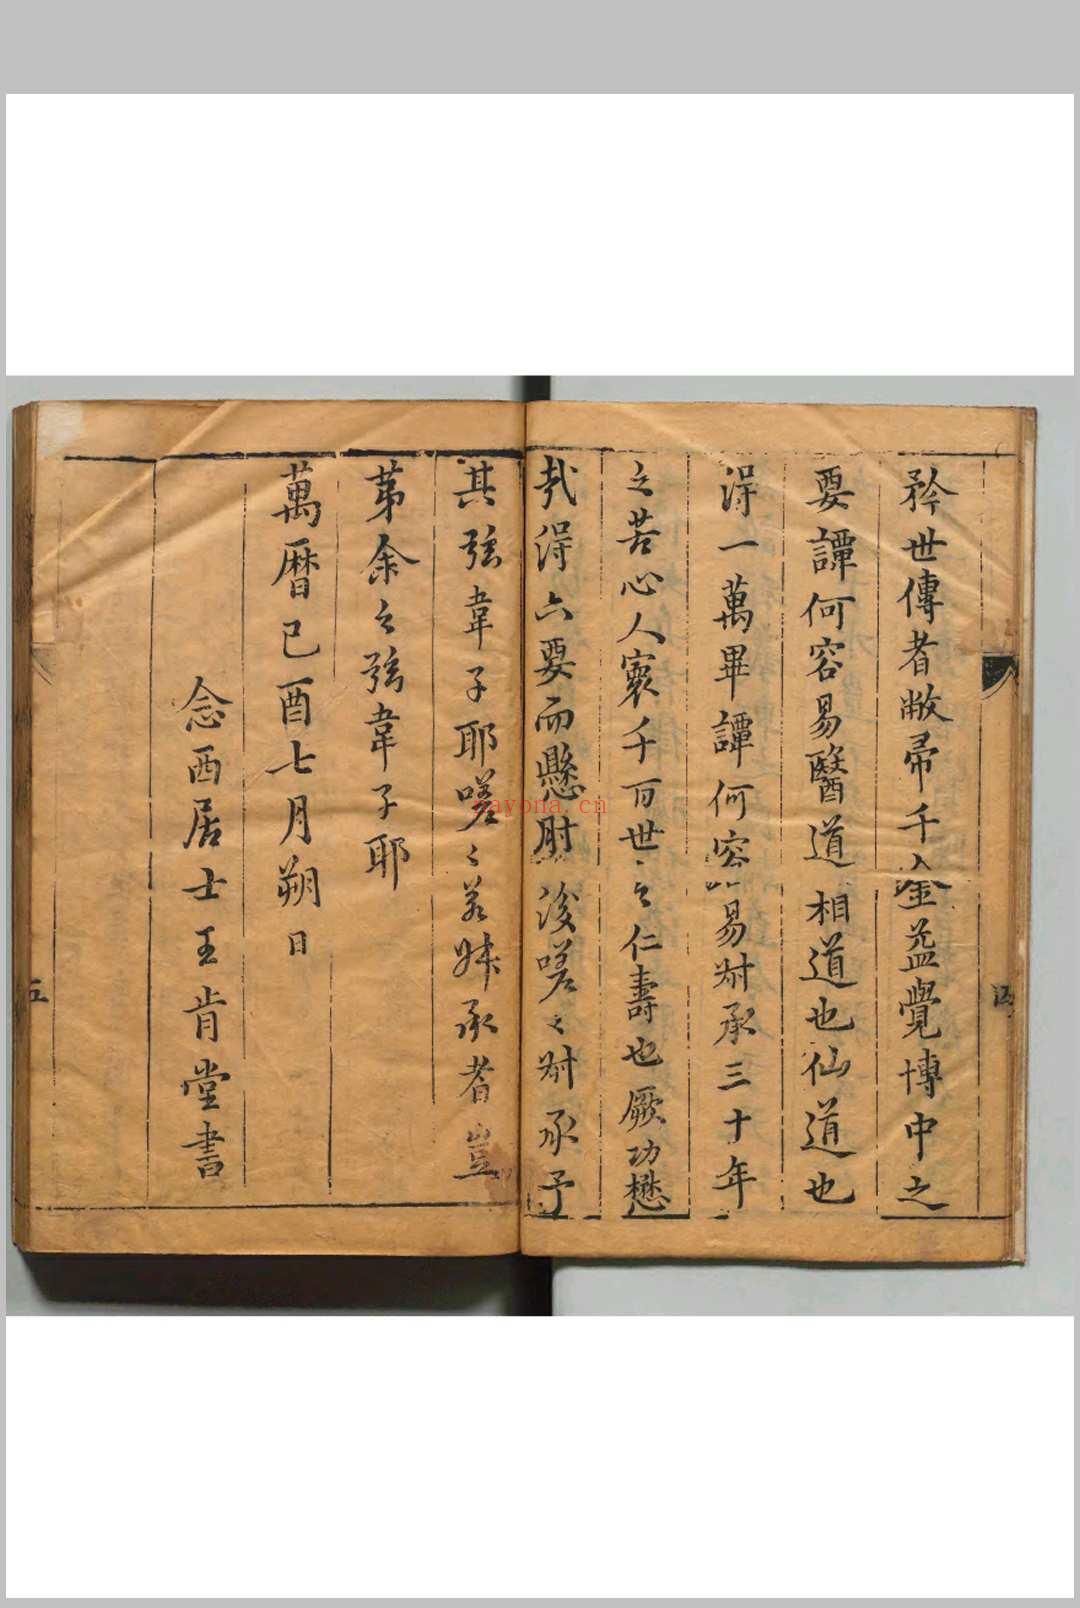 矜世傳者敝帚千金益覺博中之
要譚何容易醫道相道也仙道也
得一萬畢譚何容易尌承三十年
之苦心人寰千百世之仁壽也厥功懋
哉得六要而懸肘後嗟之尌承予
其弦韋子耶嗟々若妹承者豈
苐余之弦韋子耶
萬曆己酉七月朔日
念西居士王肯堂書
四
五
nayona.cn